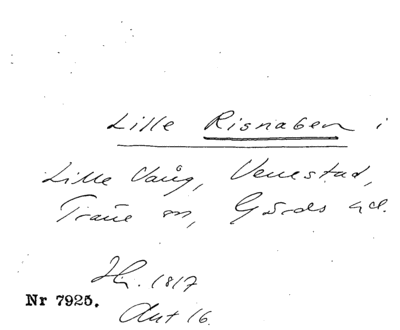 Lille Risnaben i
Lille Vång, Venestad,
Träne sn, Gärds hd.
Hn. 1817
Nr 7925.
Akt 16.